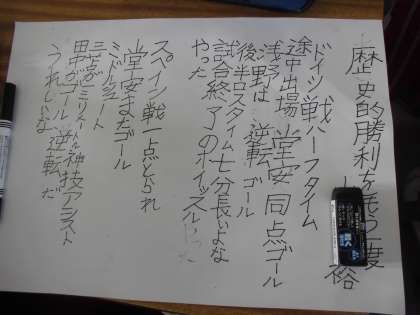 歴史的勝利をもう一度
裕
ドイツ戦ハーフタイム
途中出場 堂安 同点ゴール
浅野は 逆転 ゴール
後半ロスタイム七分長いよな
試合終了のホイッスル
やった
スペイン戦一点とられ
堂安まだゴール
ミドルシュート
三笘がミリ 神技アシスト
田中がゴール 逆転だ
うれしいな